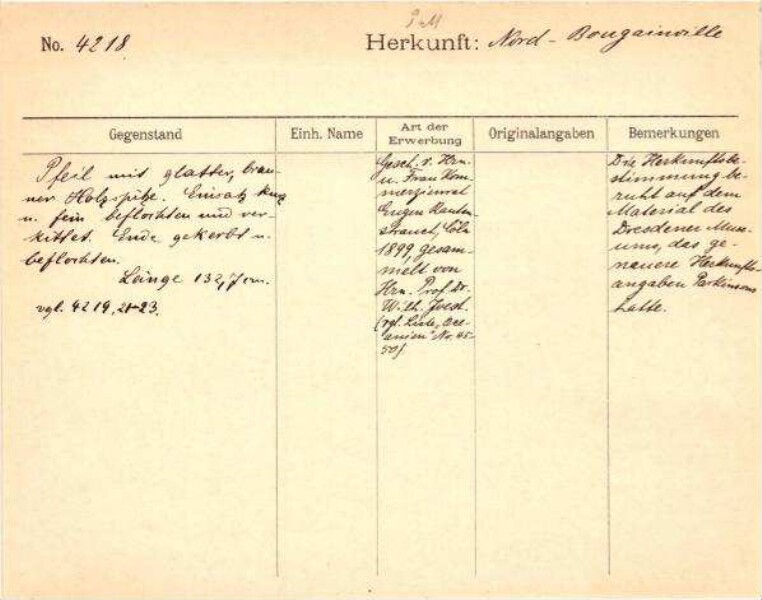 No. 4218
Herkunft: Nord - Bougainville
Gegenstand
Einh. Name
Art der
Erwerbung
Originalangaben
Bemerkungen
Pfeil mit glatter, brau-
ner Holzspitze. Einsatz kurz
u. fein beflochten und ver-
kittet. Ende gekerbt u.
beflochten.
Länge 132,7 cm.
vgl. 4219, 21-23.
Gesch. v. Hrn.
u. Frau Kom-
merzienrat
Eugen Rauten-
strauch, Cöln
1899, gesam-
melt von
Hrn. Prof. Dr.
Wilh. Joest.
(vgl. Liste, Oce-
anien" No. 45-
50)
Die Herkunftsbe-
stimmung be-
ruht auf dem
Material des
Dresdener Muse-
ums, das ge-
nauere Herkunfts-
angaben Parkinsons
hatte.